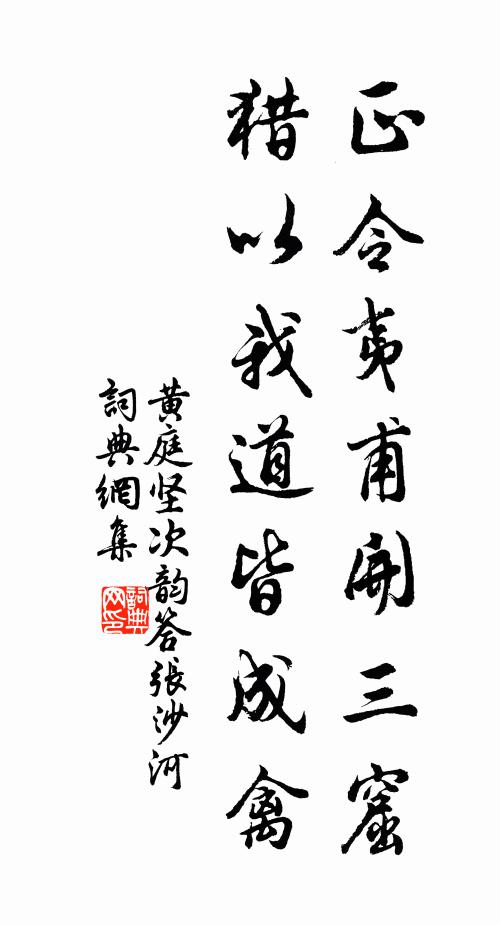 正令夷甫開三窟
猎以我道皆成禽
黄庭坚次韵答張沙河
詞典網集
詞典网印